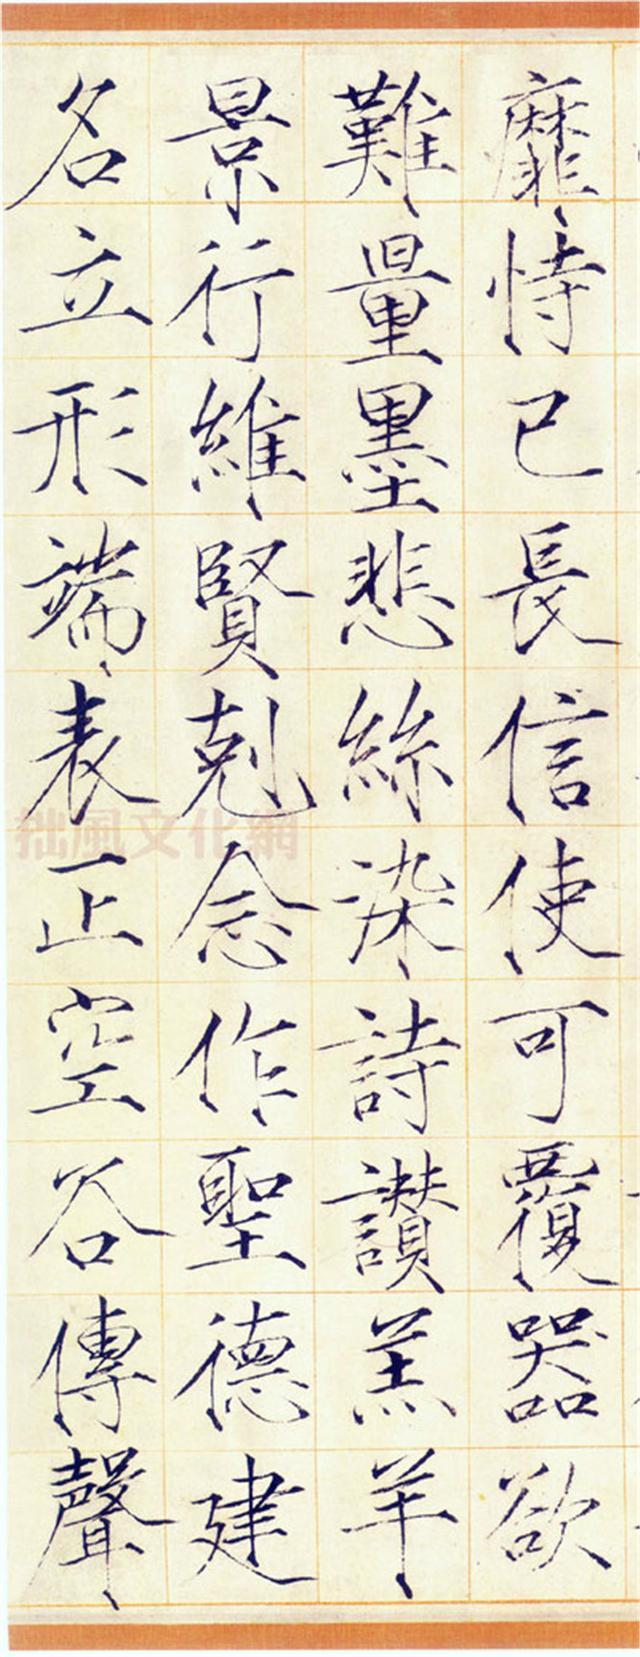 靡恃己長信使可覆器欲
難量墨悲絲染詩讚羔羊
景行維賢剋念作聖德建
名立形端表正空谷傳聲
拙風文化網